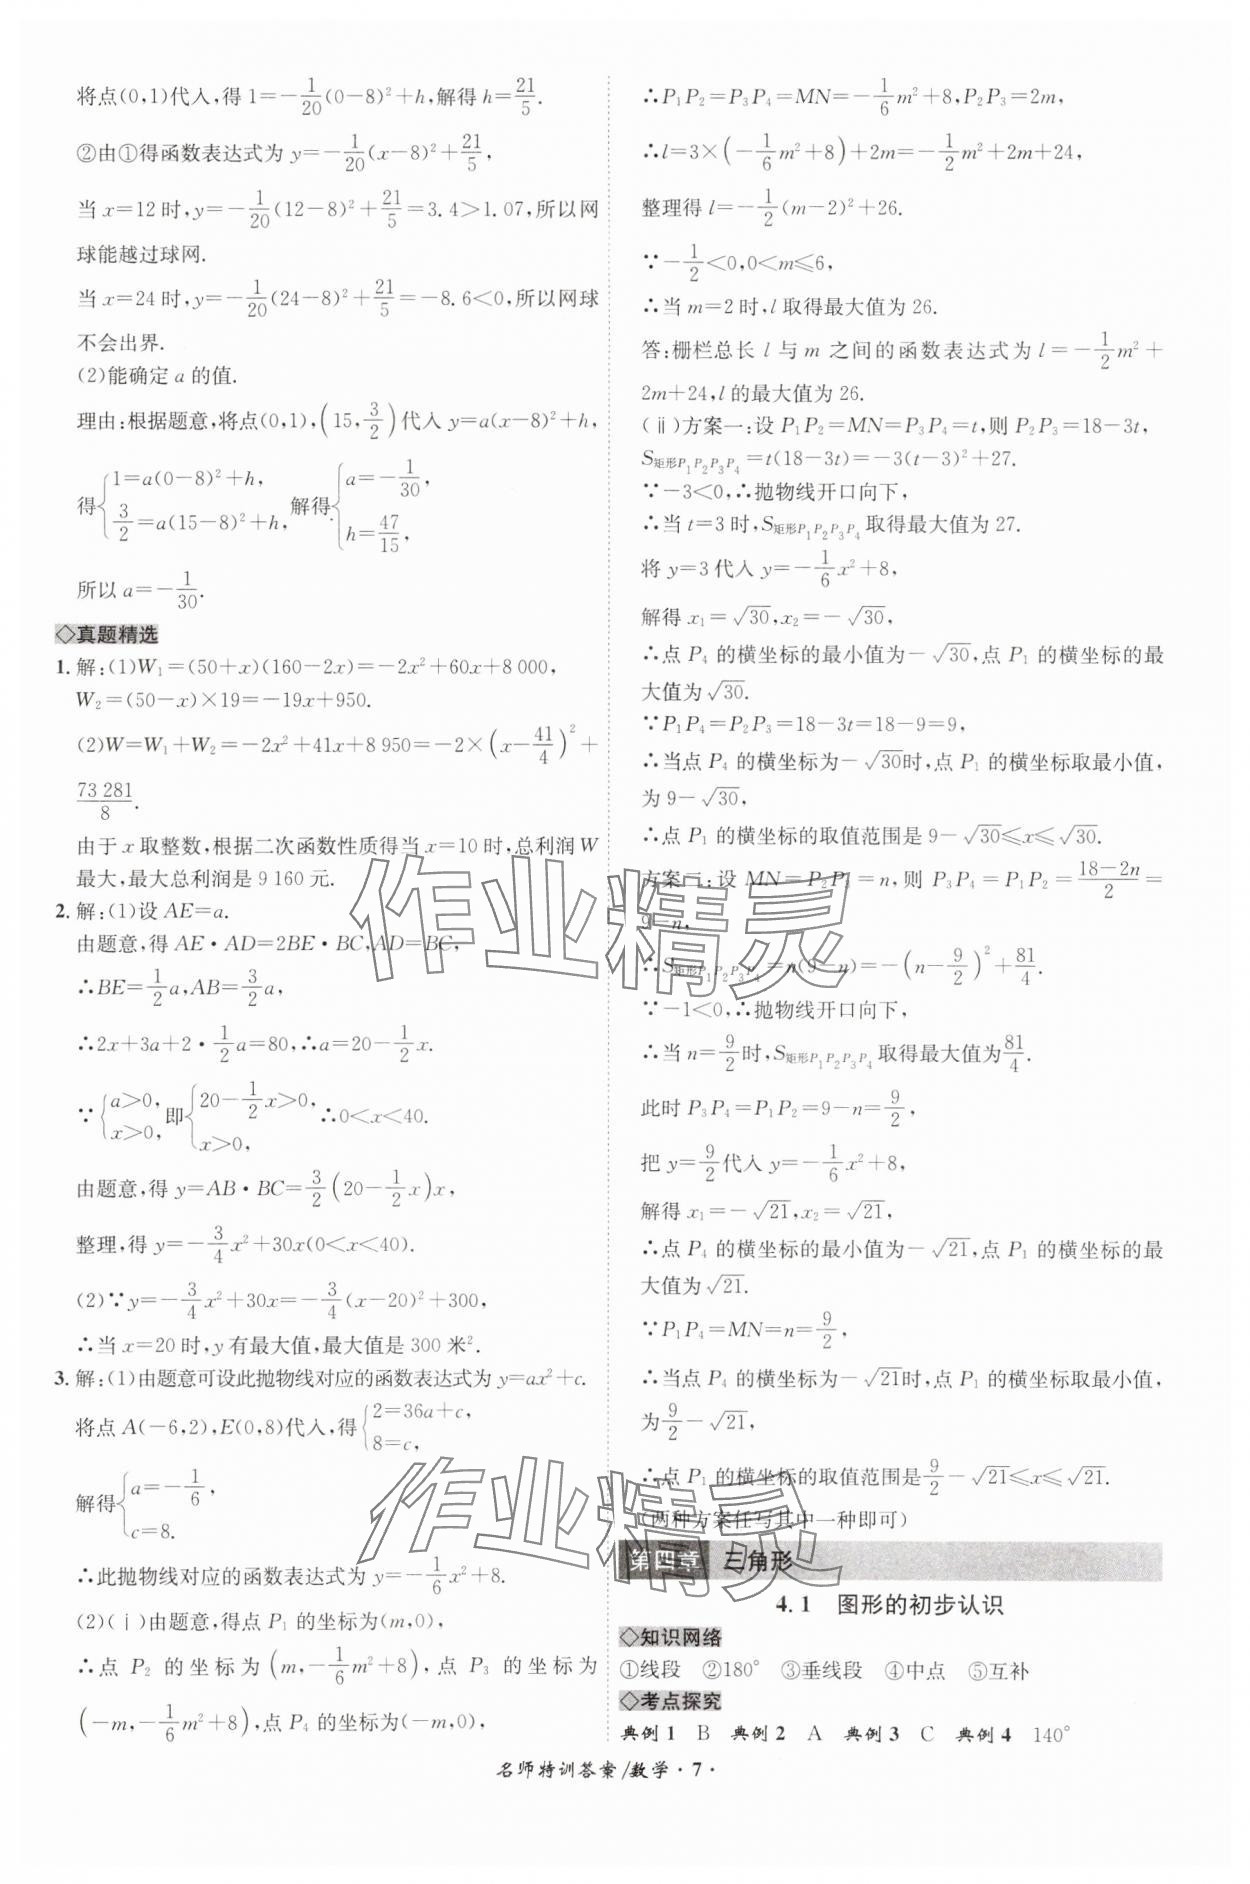 将点(0,1)代入,得 1=-1/20(0-8)²+h,解得 h=21/5.
②由①得函数表达式为 y=-1/20(x-8)²+21/5,
当 x=12 时,y=-1/20(12-8)²+21/5=3.4>1.07,所以网
球能越过球网.
当 x=24 时,y=-1/20(24-8)²+21/5=-8.6<0,所以网球
不会出界.
(2)能确定 a 的值.
理由:根据题意,将点(0,1),(15,3/2)代入 y=a(x-8)²+h,
得{1=a(0-8)²+h, 3/2=a(15-8)²+h, 解得{a=-1/30, h=47/15,
所以 a=-1/30.
◇真题精选
1. 解:(1)W₁=(50+x)(160-2x)=-2x²+60x+8 000,
W₂=(50-x)×19=-19x+950.
(2)W=W₁+W₂=-2x²+41x+8 950=-2×(x-41/4)²+
73 281/8.
由于 x 取整数,根据二次函数性质得当 x=10 时,总利润 W
最大,最大总利润是 9 160 元.
2. 解:(1)设 AE=a.
由题意,得 AE·AD=2BE·BC,AD=BC,
∴BE=1/2a,AB=3/2a,
∴2x+3a+2·1/2a=80,∴a=20-1/2x.
∵{a>0, x>0, 即{20-1/2x>0, x>0, ∴0<x<40.
由题意,得 y=AB·BC=3/2(20-1/2x)x,
整理,得 y=-3/4x²+30x(0<x<40).
(2)∵y=-3/4x²+30x=-3/4(x-20)²+300,
∴当 x=20 时,y 有最大值,最大值是 300 米².
3. 解:(1)由题意可设此抛物线对应的函数表达式为 y=ax²+c.
将点 A(-6,2),E(0,8)代入,得{2=36a+c, 8=c,
解得{a=-1/6, c=8.
∴此抛物线对应的函数表达式为 y=-1/6x²+8.
(2)(ⅰ)由题意,得点 P₁ 的坐标为(m,0),
∴点 P₂ 的坐标为(m,-1/6m²+8),点 P₃ 的坐标为
(-m,-1/6m²+8),点 P₄ 的坐标为(-m,0),
∴P₁P₂=P₃P₄=MN=-1/6m²+8,P₂P₃=2m,
∴l=3×(-1/6m²+8)+2m=-1/2m²+2m+24,
整理得 l=-1/2(m-2)²+26.
∵-1/2<0,0<m≤6,
∴当 m=2 时,l 取得最大值为 26.
答:栅栏总长 l 与 m 之间的函数表达式为 l=-1/2m²+
2m+24,l 的最大值为 26.
(ⅱ)方案一:设 P₁P₂=MN=P₃P₄=t,则 P₂P₃=18-3t,
S矩形P₁P₂P₃P₄=t(18-3t)=-3(t-3)²+27.
∵-3<0,∴抛物线开口向下,
∴当 t=3 时,S矩形P₁P₂P₃P₄取得最大值为 27.
将 y=3 代入 y=-1/6x²+8,
解得 x₁=√30,x₂=-√30,
∴点 P₄ 的横坐标的最小值为-√30,点 P₁ 的横坐标的最
大值为√30.
∵P₁P₄=P₂P₃=18-3t=18-9=9,
∴当点 P₄ 的横坐标为-√30时,点 P₁ 的横坐标取最小值,
为 9-√30,
∴点 P₁ 的横坐标的取值范围是 9-√30≤x≤√30.
方案二:设 MN=P₂P₃=n,则 P₃P₄=P₁P₂=(18-2n)/2=
9-n,
∴S矩形P₁P₂P₃P₄=n(9-n)=-(n-9/2)²+81/4.
∵-1<0,∴抛物线开口向下,
∴当 n=9/2时,S矩形P₁P₂P₃P₄取得最大值为81/4.
此时 P₃P₄=P₁P₂=9-n=9/2,
把 y=9/2代入 y=-1/6x²+8,
解得 x₁=-√21,x₂=√21,
∴点 P₄ 的横坐标的最小值为-√21,点 P₁ 的横坐标的最
大值为√21.
∵P₁P₄=MN=n=9/2,
∴当点 P₄ 的横坐标为-√21时,点 P₁ 的横坐标取最小值,
为9/2-√21,
∴点 P₁ 的横坐标的取值范围是9/2-√21≤x≤√21.
(两种方案任写其中一种即可)
第四章 三角形
4.1 图形的初步认识
◇知识网络
①线段 ②180° ③垂线段 ④中点 ⑤互补
◇考点探究
典例1 B 典例2 A 典例3 C 典例4 140°
名师特训答案/数学·7·
作业精灵
作业精灵